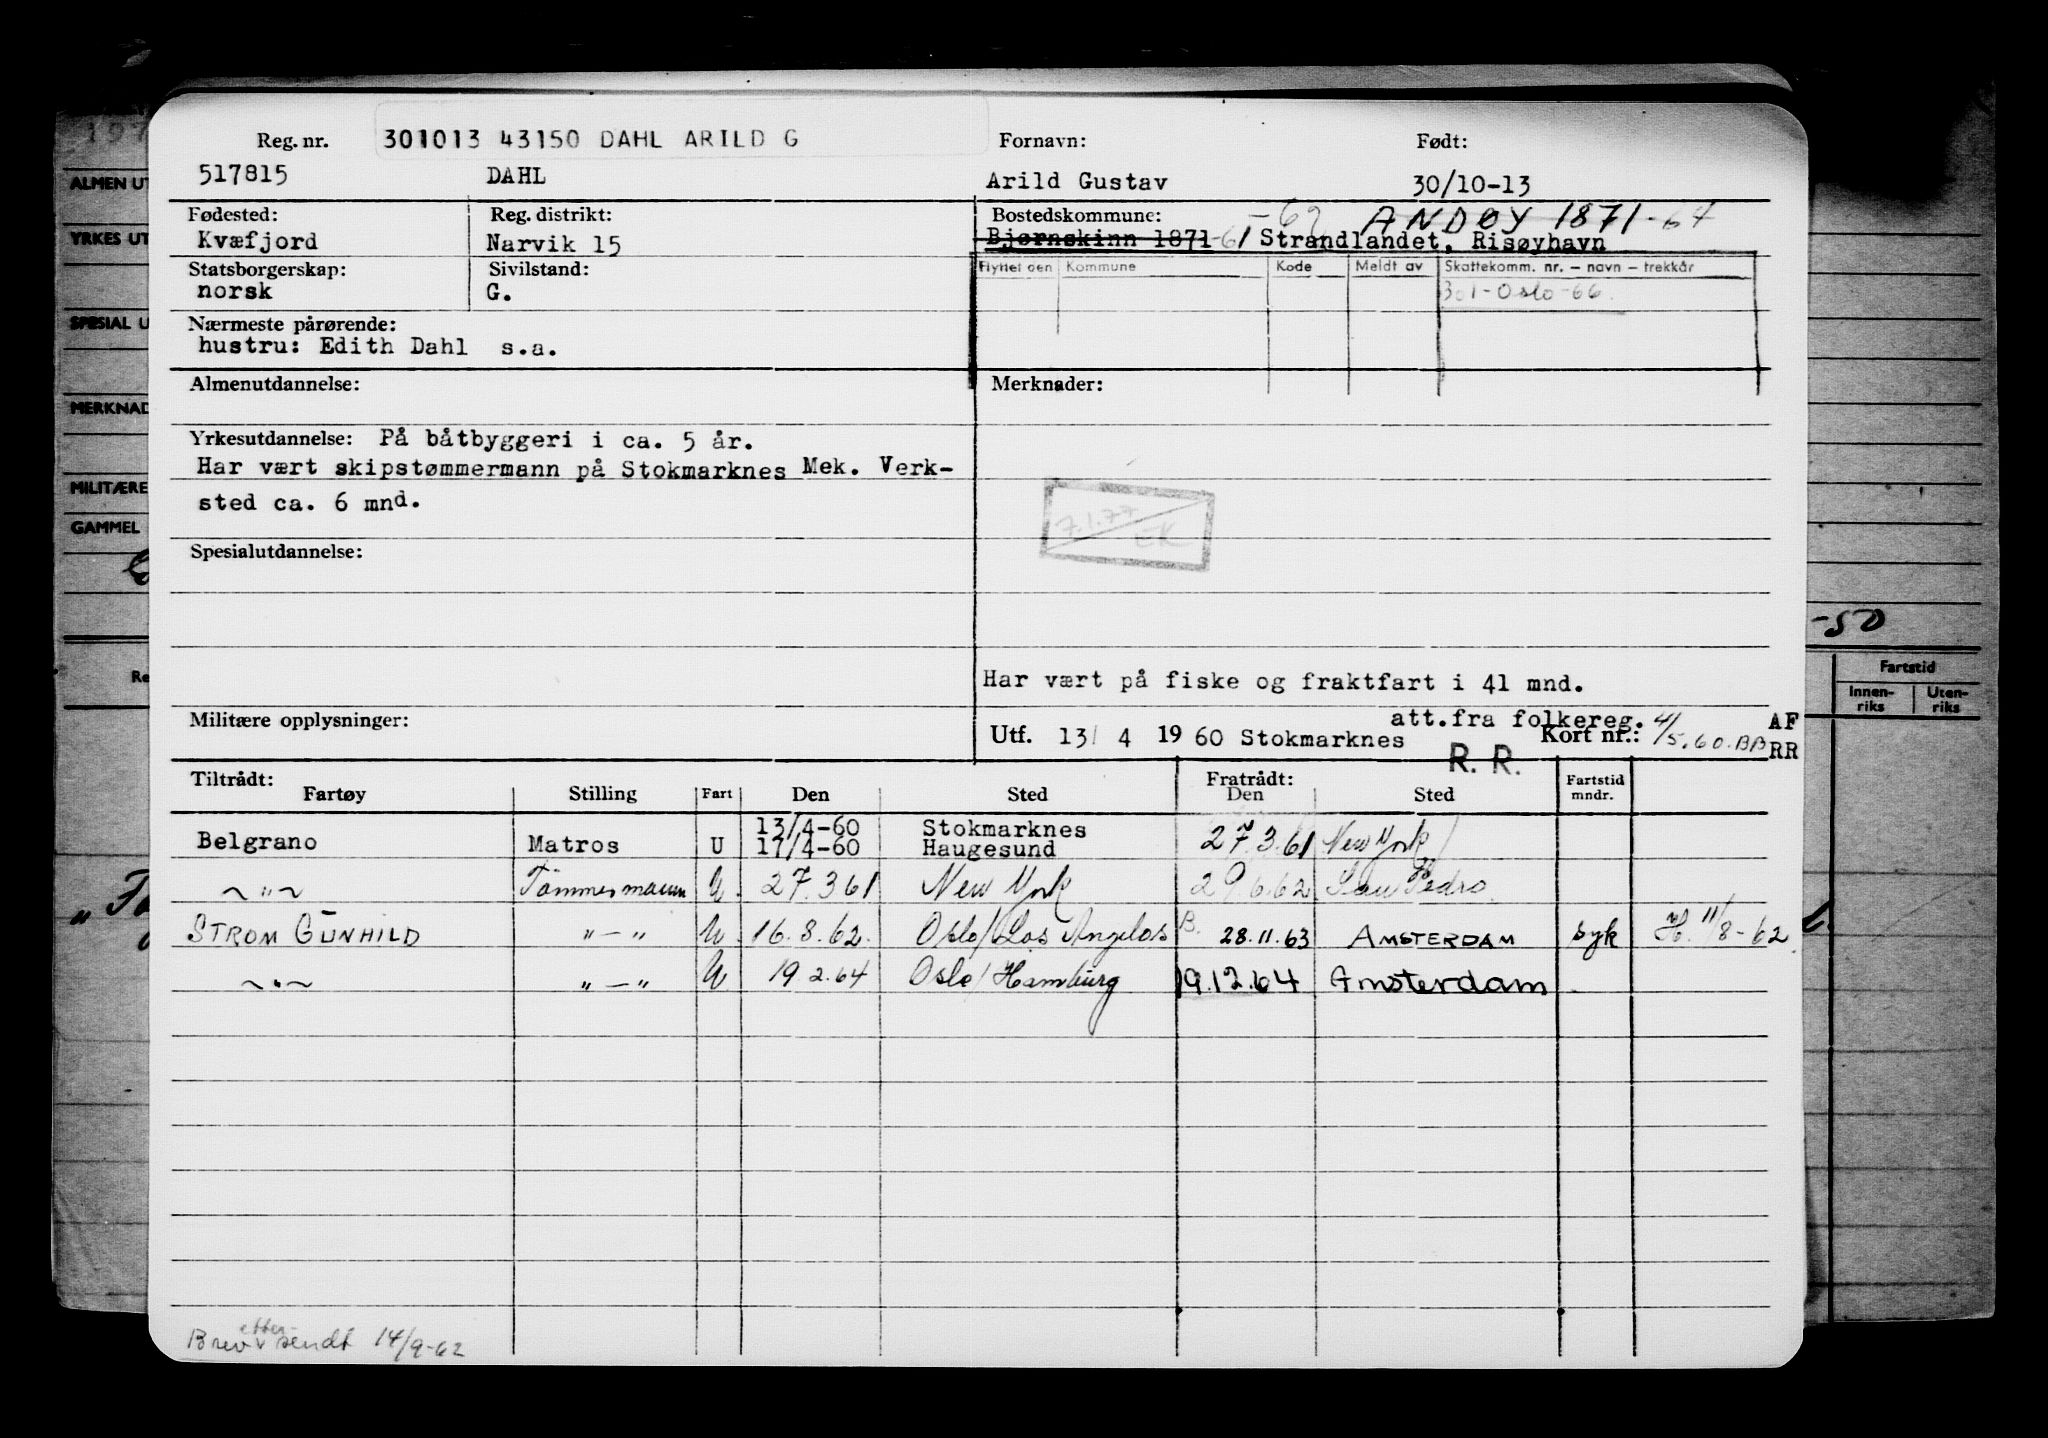 Reg. nr. 301013 43150 DAHL ARILD G Fornavn: Født:
517815 DAHL Arild Gustav 30/10-13
Fødested: Reg. distrikt: Bostedskommune: -62 ANDØY 1871-64
Kvæfjord Narvik 15 Bjørnskinn 1871-61 Strandlandet, Risøyhavn
Statsborgerskap: Sivilstand: Flyttet den Kommune Kode Meldt av Skattekomm. nr. – navn – trekkår
norsk G. 301-Oslo-66.
Nærmeste pårørende:
hustru: Edith Dahl s.a.
Almenutdannelse: Merknader:
Yrkesutdannelse: På båtbyggeri i ca. 5 år.
Har vært skipstømmermann på Stokmarknes Mek. Verk-
sted ca. 6 mnd.
7.1.77
EK
Spesialutdannelse:
Har vært på fiske og fraktfart i 41 mnd.
Militære opplysninger: att.fra folkereg. 4/5.60.BB AF
Utf. 13/ 4 19 60 Stokmarknes R. R. Kort nr.: RR
Tiltrådt: Fratrådt:
Fartøy Stilling Fart Den Sted Den Sted Fartstid mndr.
13/4-60 Stokmarknes
Belgrano Matros U 17/4-60 Haugesund 27.3.61 New York
~"~ Tömmermann U 27.3.61 New York 29.6.62 San Pedro
STROM GUNHILD "-" U 16.8.62. Oslo/Los Angelos B. 28.11.63 AMSTERDAM syk H. 11/8-62.
~"~ "-" U 19.2.64 Oslo/Hamburg 19.12.64 Amsterdam
etter-
Brev sendt 14/9-62
197
ALMEN UT
YRKES UT
SPESIAL U
MERKNAD
MILITÆRE
GAMMEL
Re
-50
Fartstid
Innen-riks Uten-riks